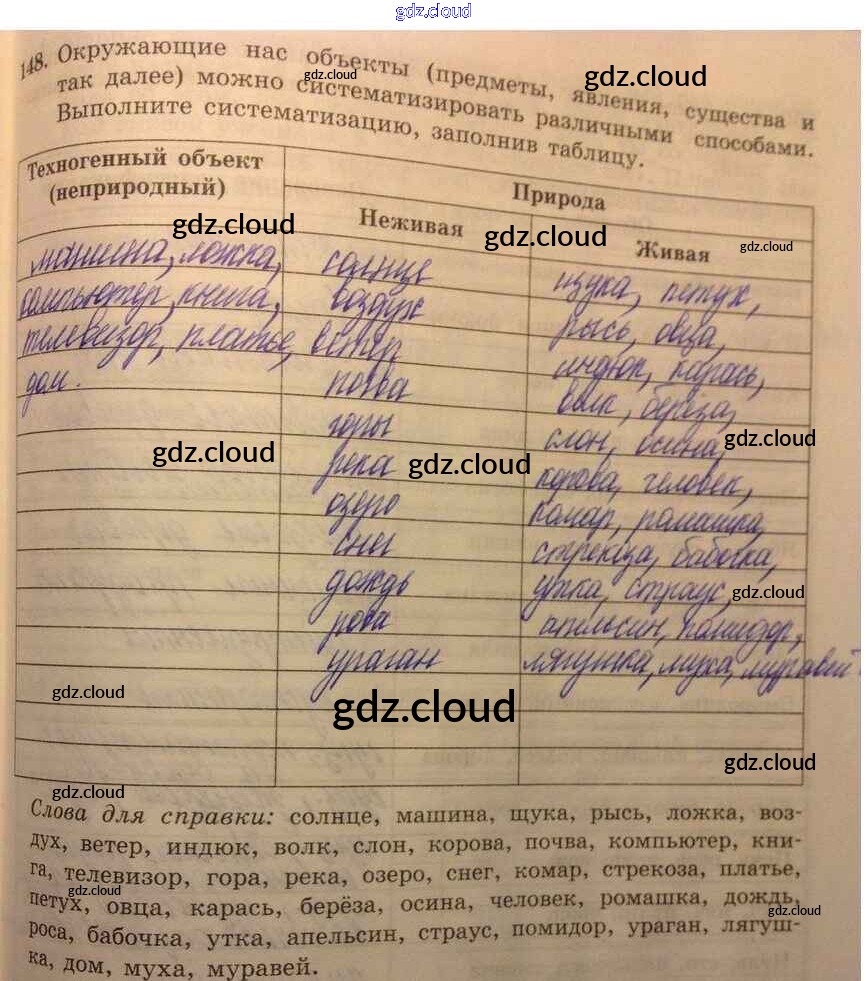 gdz.cloud
148. Окружающие нас объекты (предметы, явления, существа и
так далее) можно систематизировать различными способами.
Выполните систематизацию, заполнив таблицу.
gdz.cloud
gdz.cloud
Техногенный объект
(неприродный)
Природа
Неживая
Живая
gdz.cloud
gdz.cloud
gdz.cloud
машина, ложка,
компьютер, книга,
телевизор, платье,
дом.
солнце
воздух
ветер
почва
горы
река
озеро
снег
дождь
роса
ураган
щука, петух,
рысь, овца,
индюк, карась,
волк, берёза,
слон, осина,
корова, человек,
комар, ромашка,
стрекоза, бабочка,
утка, страус,
апельсин, помидор,
лягушка, муха, муравей.
gdz.cloud
gdz.cloud
gdz.cloud
gdz.cloud
gdz.cloud
gdz.cloud
gdz.cloud
gdz.cloud
Слова для справки: солнце, машина, щука, рысь, ложка, воз-
дух, ветер, индюк, волк, слон, корова, почва, компьютер, кни-
га, телевизор, гора, река, озеро, снег, комар, стрекоза, платье,
петух, овца, карась, берёза, осина, человек, ромашка, дождь,
роса, бабочка, утка, апельсин, страус, помидор, ураган, лягуш-
ка, дом, муха, муравей.
gdz.cloud
gdz.cloud